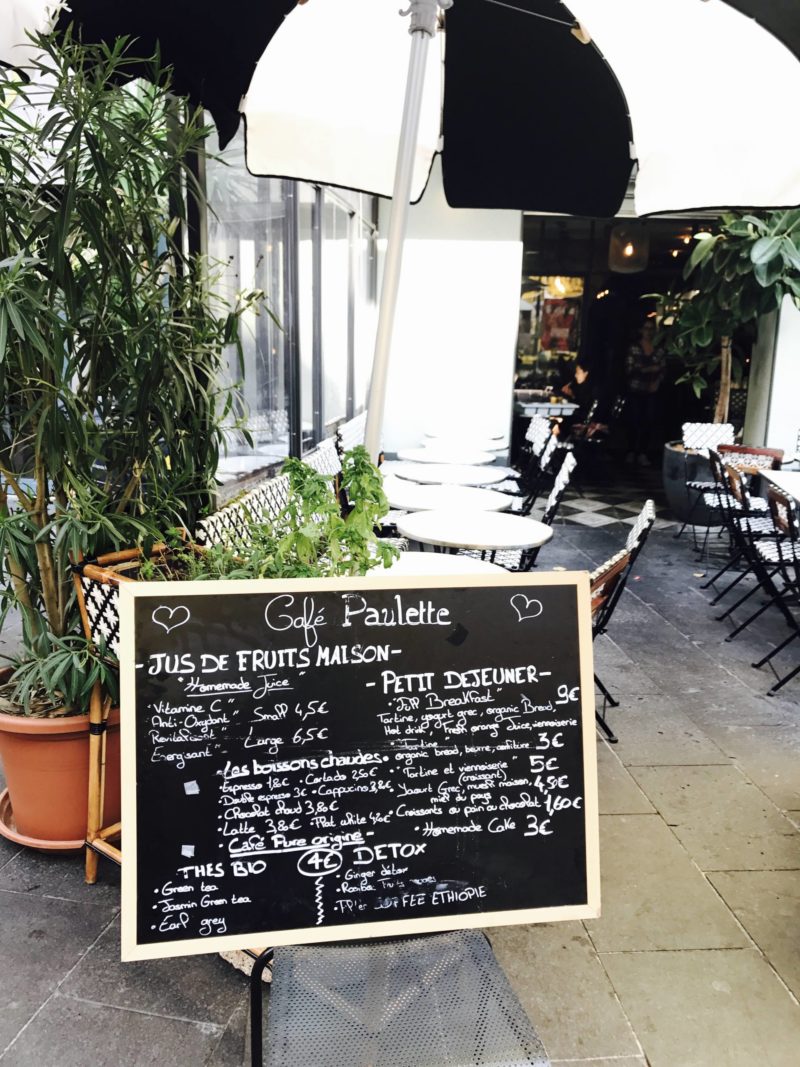 Café Paulette
- JUS DE FRUITS MAISON -
"Homemade Juice"
"Vitamine C"
"Anti-Oxydant"
Revitalisant
Energisant"
Small 4,5€
Large 6,5€
- PETIT DEJEUNER -
• "Full Breakfast" 9€
Tartine, yogurt grec, organic Bread,
Hot drink, Fresh orange Juice, viennoiserie
• Tartine
organic bread, beurre, confiture 3€
• "Tartine et viennoiserie" 5€
(croissant)
• Yaourt Grec, muesli maison, 4,50€
miel du pays
• Croissants ou pain au chocolat 1,60€
• Homemade Cake 3€
Les boissons chaudes
• Espresso 1,80€ • Cortado 2,50€
• Double espresso 3€ • Cappucino 3,80€
• Chocolat chaud 3,80€
• Latte 3,80€ • Flat white 4,20€
- Café Pure origine -
THES BIO
• Green tea
• Jasmin Green tea
• Earl grey
4€
DETOX
• Ginger détox
• Rooibos Fruits
COFFEE ETHIOPIE